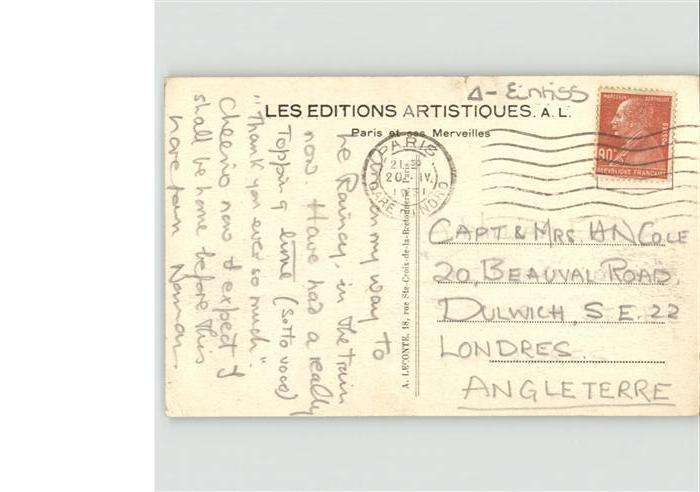 Δ - Entiss
LES EDITIONS ARTISTIQUES. A. L.
Paris et ses Merveilles
MARCELLIN BERTHELOT
90c
POSTES
REPUBLIQUE FRANCAISE
PARIS
20 IV
GARE DU NORD
on my way to
Le Raincy, in the train
now Have had a really
Topping time (Sotto voce)
"Thank you ever so much".
Cheerio now I expect I
shall be home before this
Norman
A. LECONTE, 18, rue Ste-Croix-de-la-Bretonnerie
CAPT & MRS. HN COLE
20, BEAUVAL ROAD
DULWICH, S.E. 22
LONDRES.
ANGLETERRE